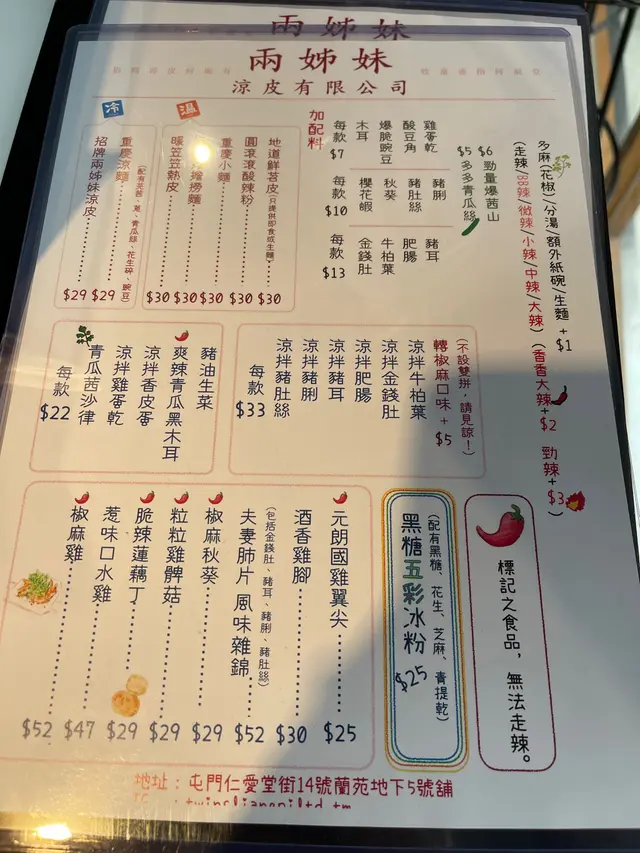 兩姊妹
兩姊妹
涼皮有限公司
多麻(花椒)/分湯/額外紙碗/生麵 + $1
(走辣/BB辣/微辣/小辣/中辣/大辣)
(香香大辣+$2 勁辣+$3)
$6 勁量爆茜山
$5 多多青瓜絲
加配料
雞蛋乾
酸豆角
爆脆豌豆
木耳
每款 $7
豬脷
豬肚絲
秋葵
櫻花蝦
每款 $10
豬耳
肥腸
牛柏葉
金錢肚
每款 $13
溫
地道鮮苕皮(只提供即食或生麵) $30
圓滾滾酸辣粉 $30
重慶小麵 $30
撈麵 $30
暖笠笠熱皮 $30
冷
(配有芫茜、葱、青瓜絲、花生碎、豌豆)
重慶涼麵 $29
招牌兩姊妹涼皮 $29
(不設雙拼,請見諒!)
轉椒麻口味 + $5
涼拌牛柏葉
涼拌金錢肚
涼拌肥腸
涼拌豬耳
涼拌豬脷
涼拌豬肚絲
每款 $33
豬油生菜
爽辣青瓜黑木耳
涼拌香皮蛋
涼拌雞蛋乾
青瓜茜沙律
每款 $22
標記之食品,無法走辣。
(配有黑糖、花生、芝麻、青提乾)
黑糖五彩冰粉 $25
元朗國雞翼尖 $25
酒香雞腳 $30
(包括金錢肚、豬耳、豬脷、豬肚絲)
夫妻肺片 風味雜錦 $52
椒麻秋葵 $29
粒粒雞髀菇 $29
脆辣蓮藕丁 $29
惹味口水雞 $47
椒麻雞 $52
地址:屯門仁愛堂街14號蘭苑地下5號舖